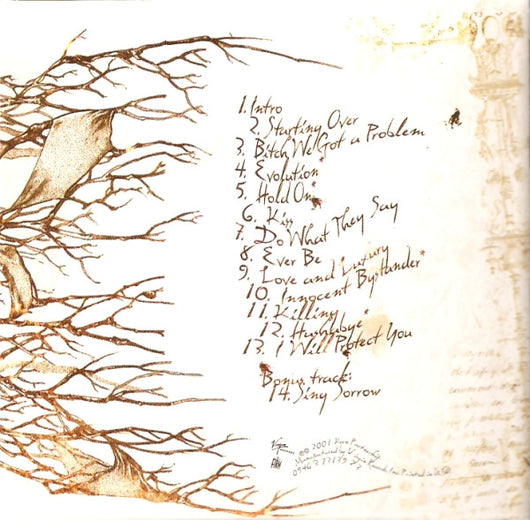 1. Intro
2. Starting Over
3. Bitch We Got a Problem
4. Evolution*
5. Hold On*
6. Kiss
7. Do What They Say
8. Ever Be
9. Love and Luxury
10. Innocent Bystander*
11. Killing
12. Hushabye*
13. I Will Protect You
Bonus track:
14. Sing Sorrow
℗© 2001